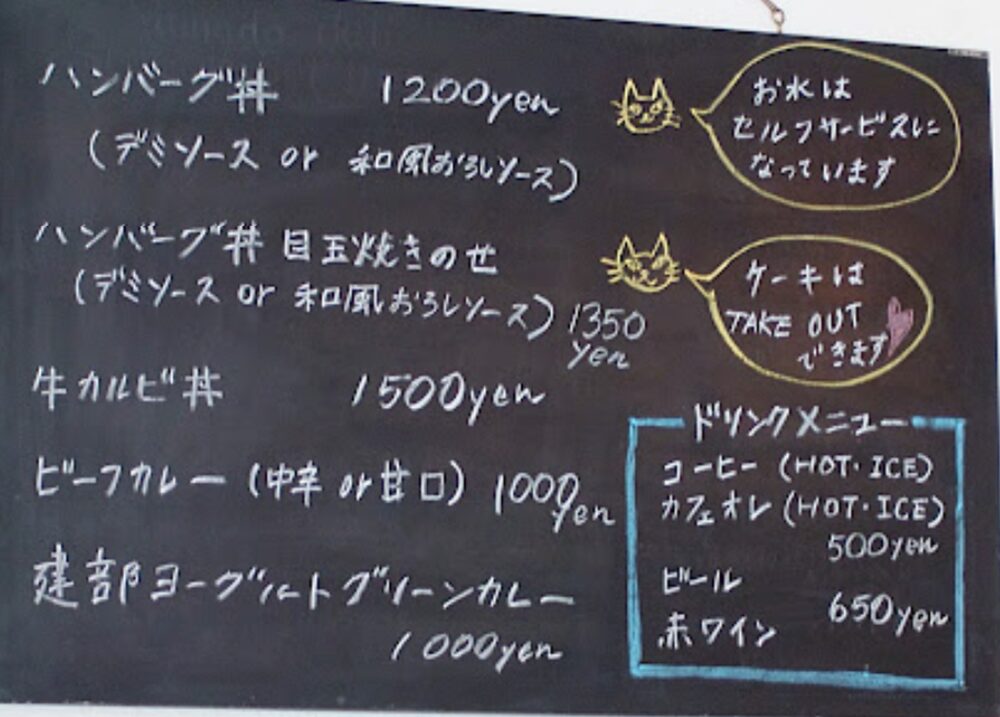 ハンバーグ丼 1200yen
(デミソース or 和風おろしソース)
ハンバーグ丼 目玉焼きのせ
(デミソース or 和風おろしソース) 1350
yen
牛カルビ丼 1500yen
ビーフカレー (中辛 or 甘口) 1000
yen
建部ヨーグルートグリーンカレー
1000yen
お水は
セルフサービスに
なっています
ケーキは
TAKE OUT
できます
ドリンクメニュー
コーヒー (HOT・ICE)
カフェオレ (HOT・ICE)
500yen
ビール
650yen
赤ワイン